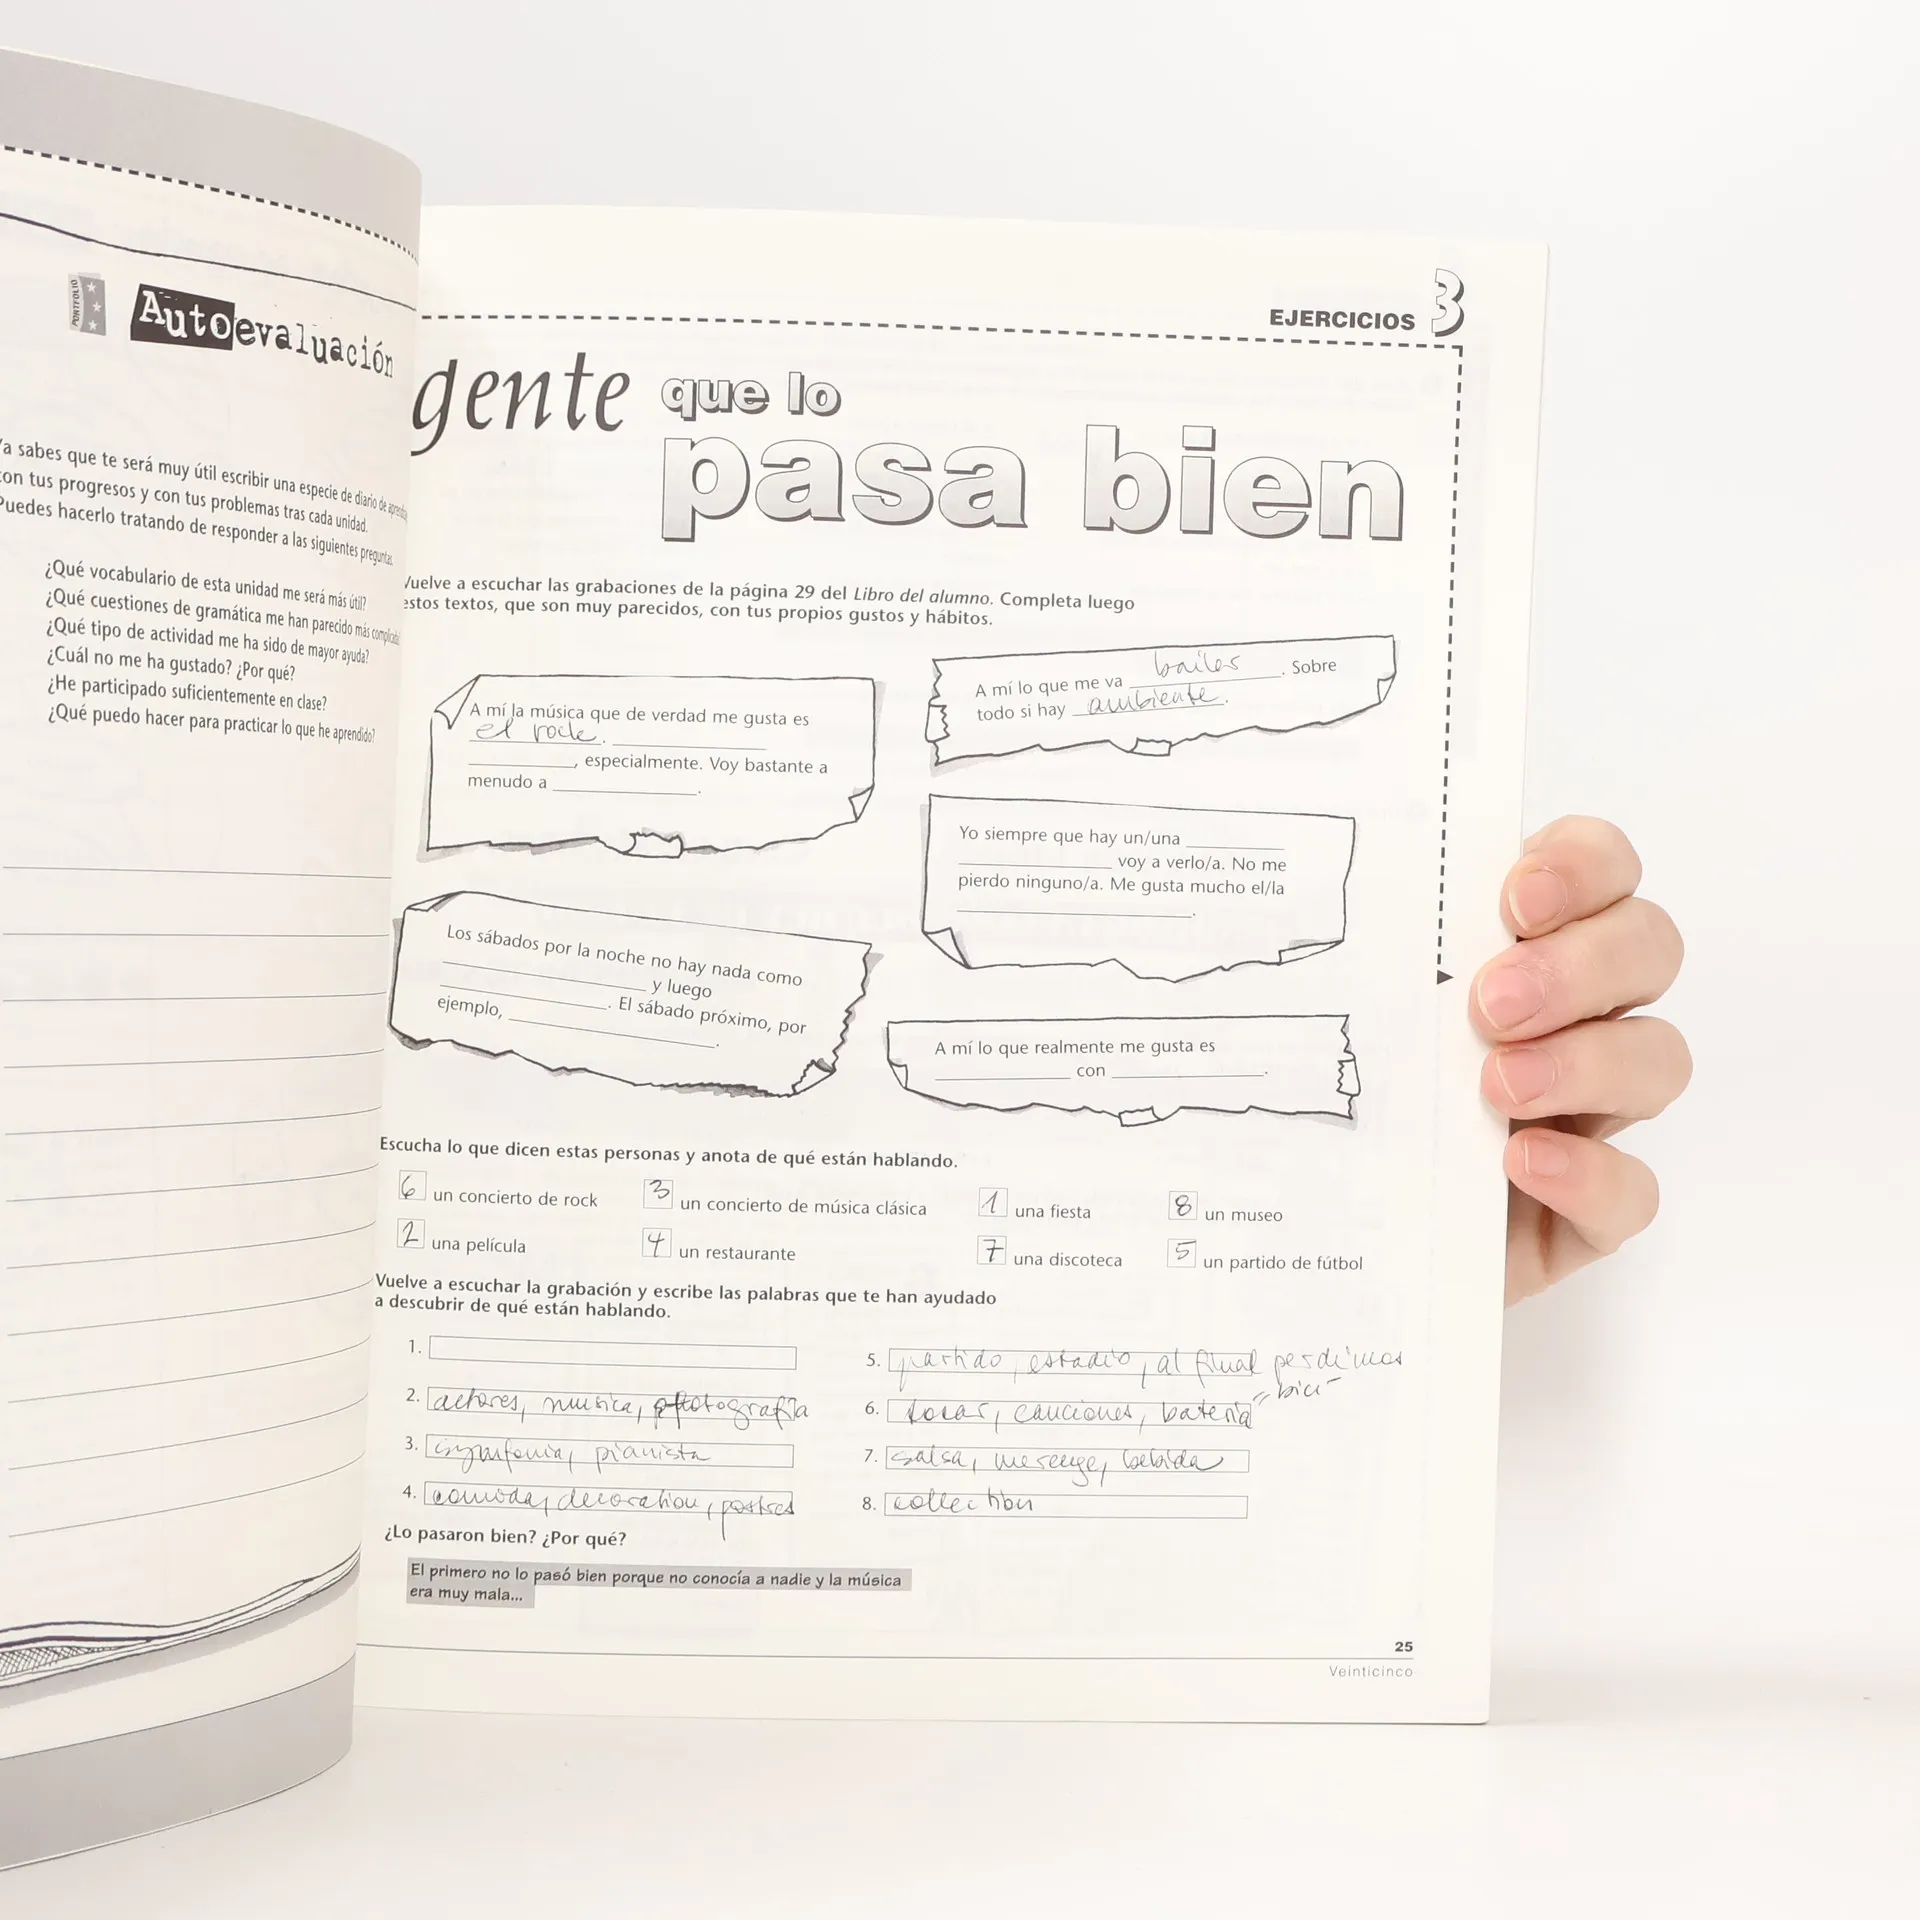 PORTFOLIO
Autoevaluación
Ya sabes que te será muy útil escribir una especie de diario de
con tus progresos y con tus problemas tras cada unidad.
Puedes hacerlo tratando de responder a las siguientes preguntas.
¿Qué vocabulario de esta unidad me será más útil?
¿Qué cuestiones de gramática me han parecido más
¿Qué tipo de actividad me ha sido de mayor ayuda?
¿Cuál no me ha gustado? ¿Por qué?
¿He participado suficientemente en clase?
¿Qué puedo hacer para practicar lo que he aprendido?
EJERCICIOS 3
gente que lo
pasa bien
Vuelve a escuchar las grabaciones de la página 29 del Libro del alumno. Completa luego
estos textos, que son muy parecidos, con tus propios gustos y hábitos.
A mí la música que de verdad me gusta es
el rock.
, especialmente. Voy bastante a
menudo a .
A mí lo que me va bailar. Sobre
todo si hay ambiente.
Yo siempre que hay un/una
voy a verlo/a. No me
pierdo ninguno/a. Me gusta mucho el/la
.
Los sábados por la noche no hay nada como
y luego
. El sábado próximo, por
ejemplo, .
A mí lo que realmente me gusta es
con .
Escucha lo que dicen estas personas y anota de qué están hablando.
6 un concierto de rock 3 un concierto de música clásica 1 una fiesta 8 un museo
2 una película 4 un restaurante 7 una discoteca 5 un partido de fútbol
Vuelve a escuchar la grabación y escribe las palabras que te han ayudado
a descubrir de qué están hablando.
1.
2. actores, musica, fotografía
3. symfonia, pianista
4. comida, decoration, postres
5. partido, estadio, al final perdimos
6. tocar, canciones, batería
7. salsa, merenge, bebida
8. collection
¿Lo pasaron bien? ¿Por qué?
El primero no lo pasó bien porque no conocía a nadie y la música
era muy mala...
25
Veinticinco